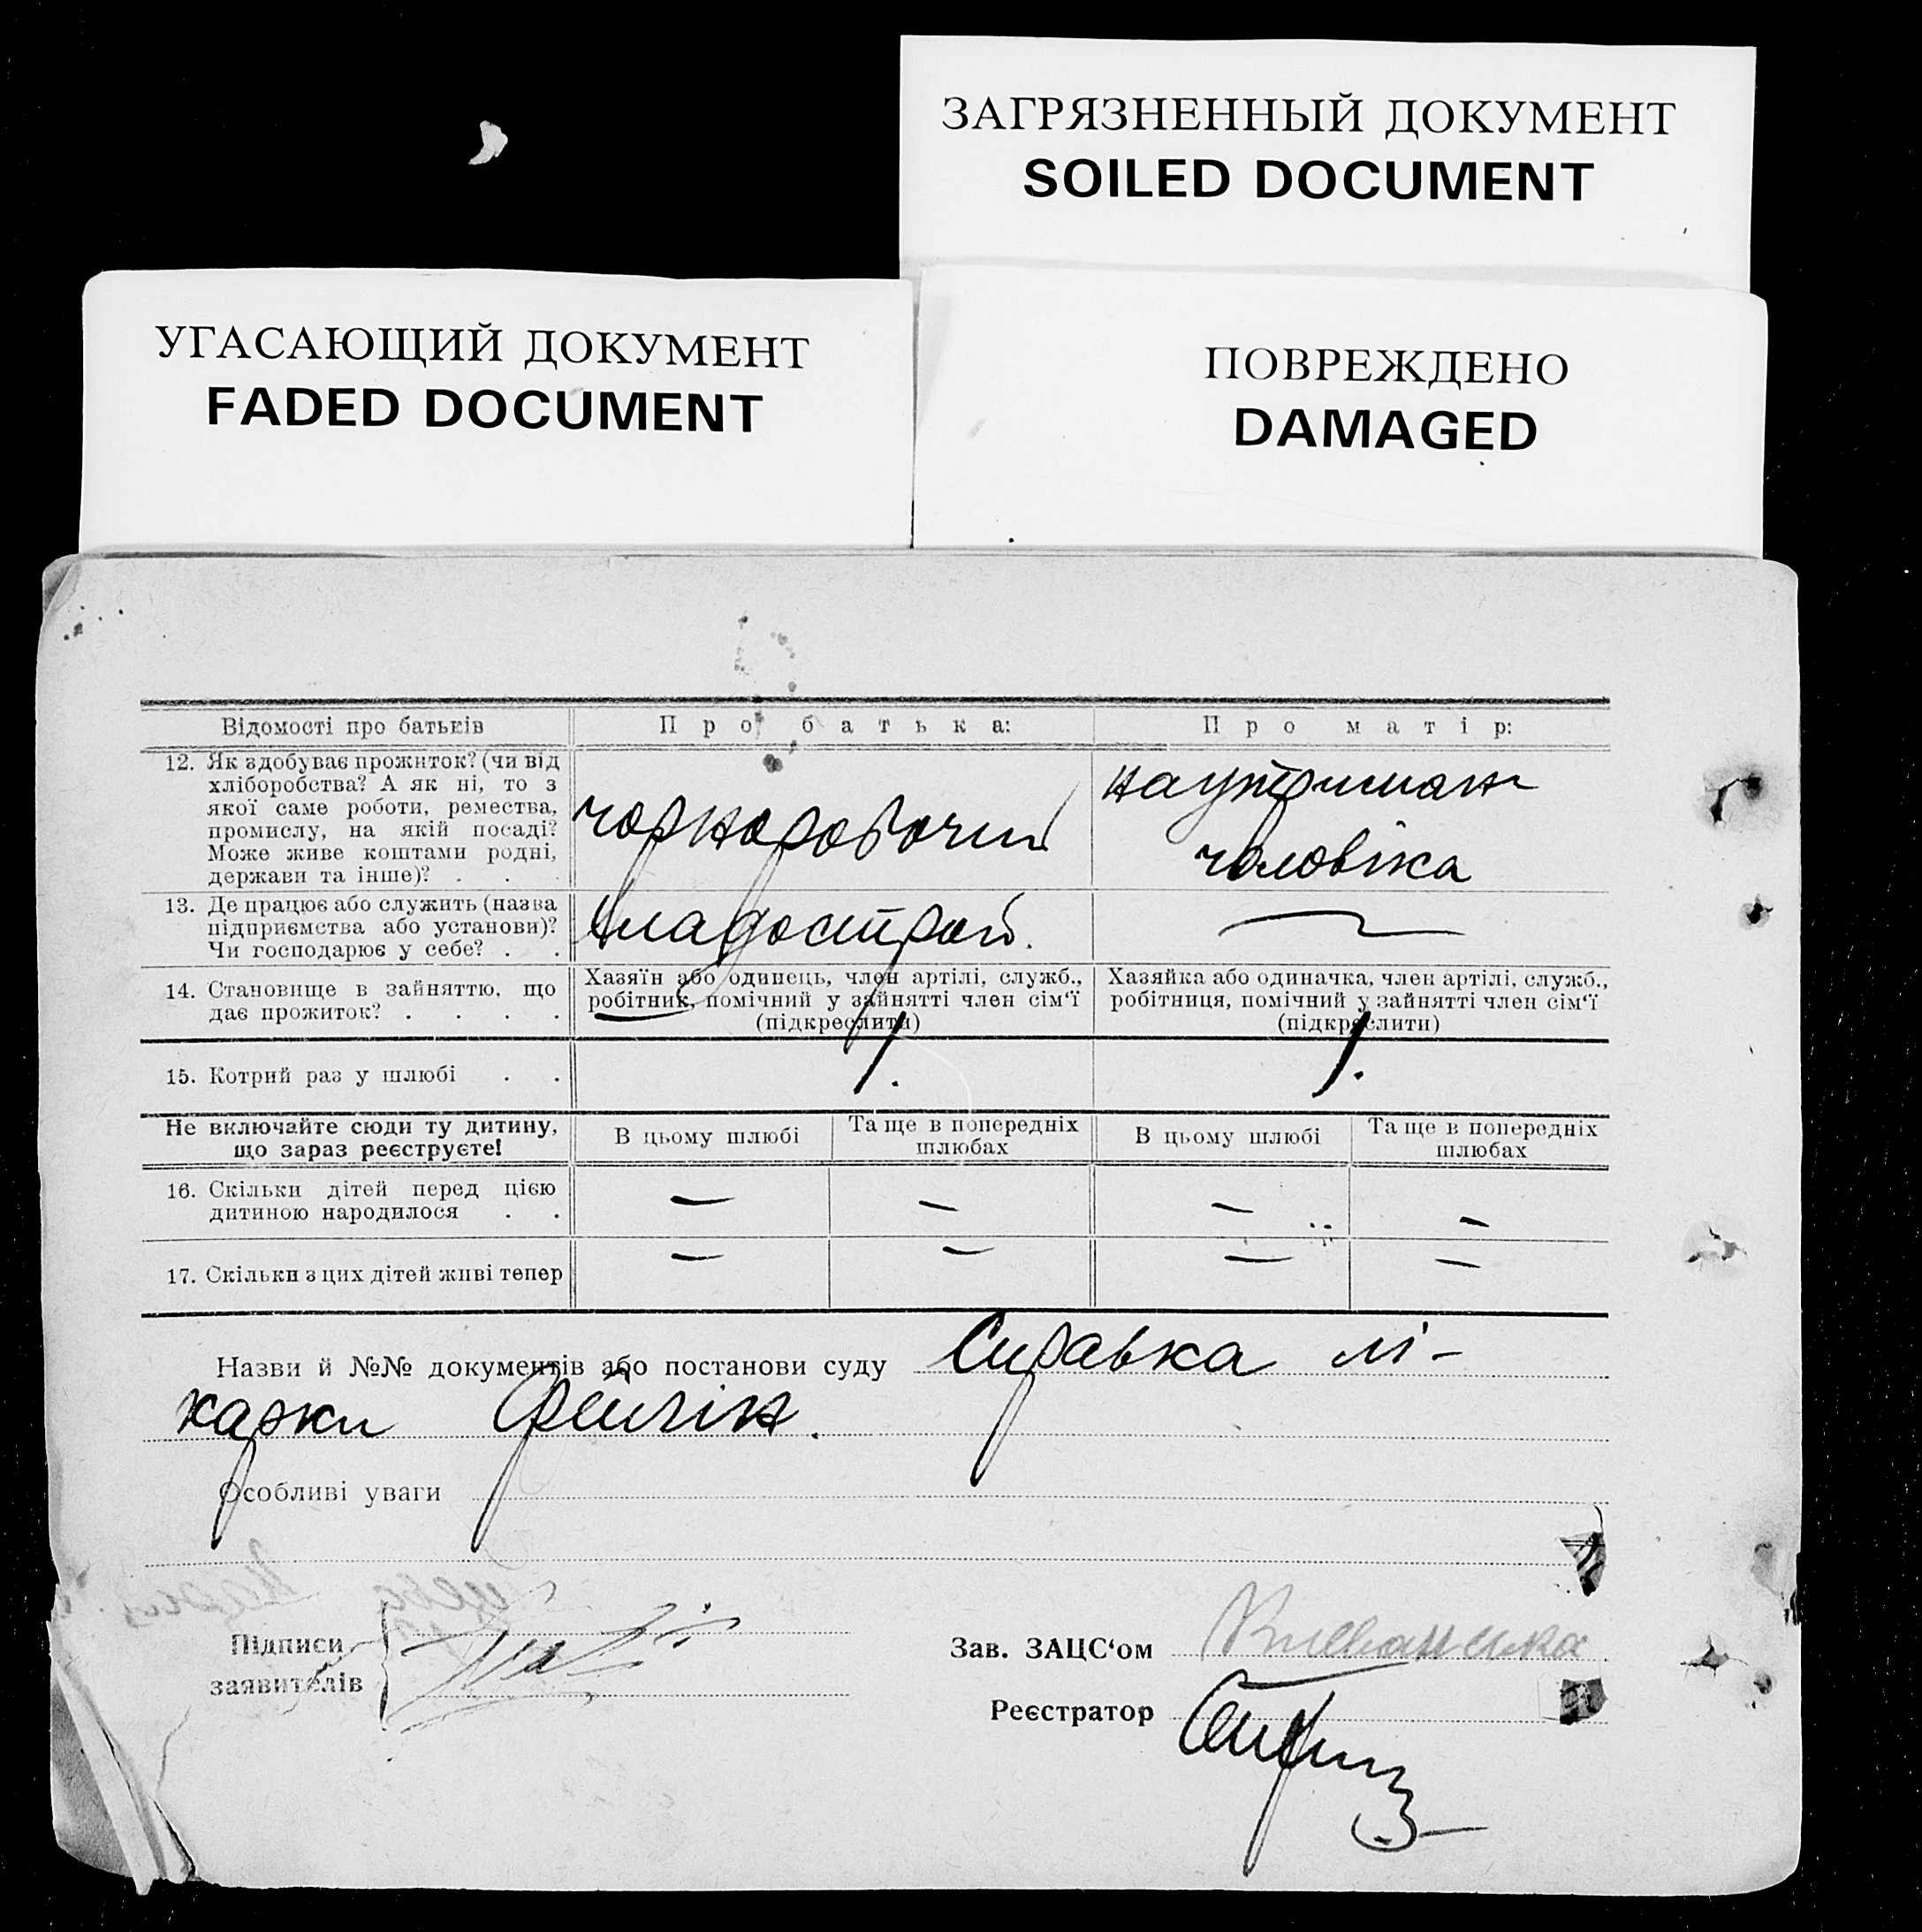 ЗАГРЯЗНЕННЫЙ ДОКУМЕНТ
SOILED DOCUMENT
УГАСАЮЩИЙ ДОКУМЕНТ
FADED DOCUMENT
ПОВРЕЖДЕНО
DAMAGED
Відомості про батьків
Про батька:
Про матір:
12. Як здобуває прожиток? (чи від
хліборобства? А як ні, то з
якої саме роботи, ремества,
промислу, на якій посаді?
Може живе коштами родні,
держави та інше)? . .
чорноробочий
на утриман
чоловіка
13. Де працює або служить (назва
підприємства або установи)?
Чи господарює у себе? . .
14. Становище в зайняттю, що
дає прожиток? . . . .
Хазяїн або одинець, член артілі, служб.,
робітник, помічний у зайнятті член сім‘ї
(підкреслити)
Хазяйка або одиначка, член артілі, служб.,
робітниця, помічний у зайнятті член сім‘ї
(підкреслити)
15. Котрий раз у шлюбі . .
1.
1.
Не включайте сюди ту дитину,
що зараз реєструєте!
В цьому шлюбі
Та ще в попередніх
шлюбах
В цьому шлюбі
Та ще в попередніх
шлюбах
16. Скільки дітей перед цією
дитиною народилося . .
— — — —
17. Скільки з цих дітей живі тепер
— — — —
Назви й №№ документів або постанови суду Справка лі-
карки
Особливі уваги
Підписи
заявителів
Зав. ЗАЦС‘ом
Реєстратор